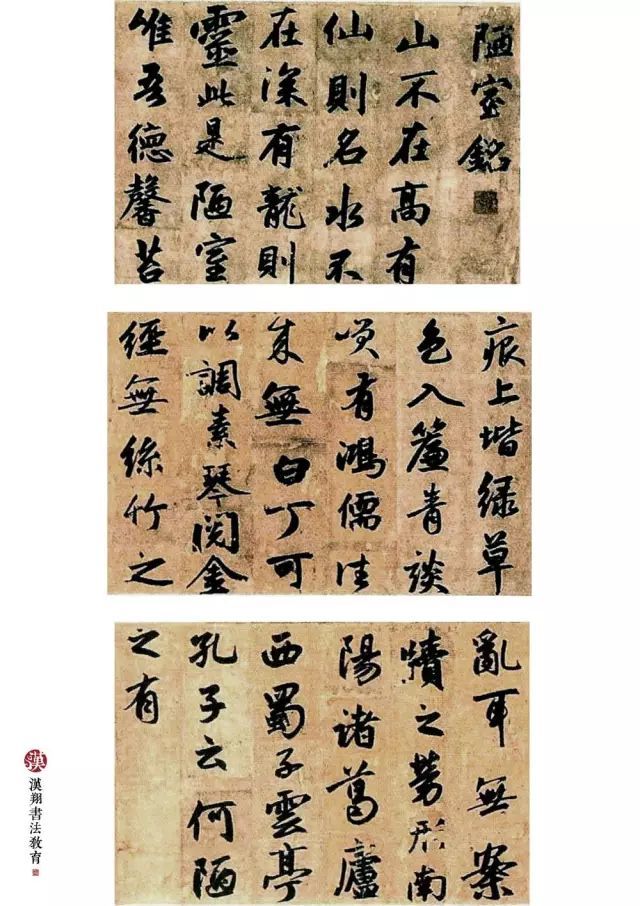 陋室銘
山不在高有
仙則名水不
在深有龍則
靈此是陋室
惟吾德馨苔
痕上堦緑草
色入簾青談
笑有鴻儒往
来無白丁可
以調素琴閱金
經無絲竹之
亂耳無案
牘之勞形南
陽諸葛廬
西蜀子雲亭
孔子云何陋
之有
漢
漢翔書法教育